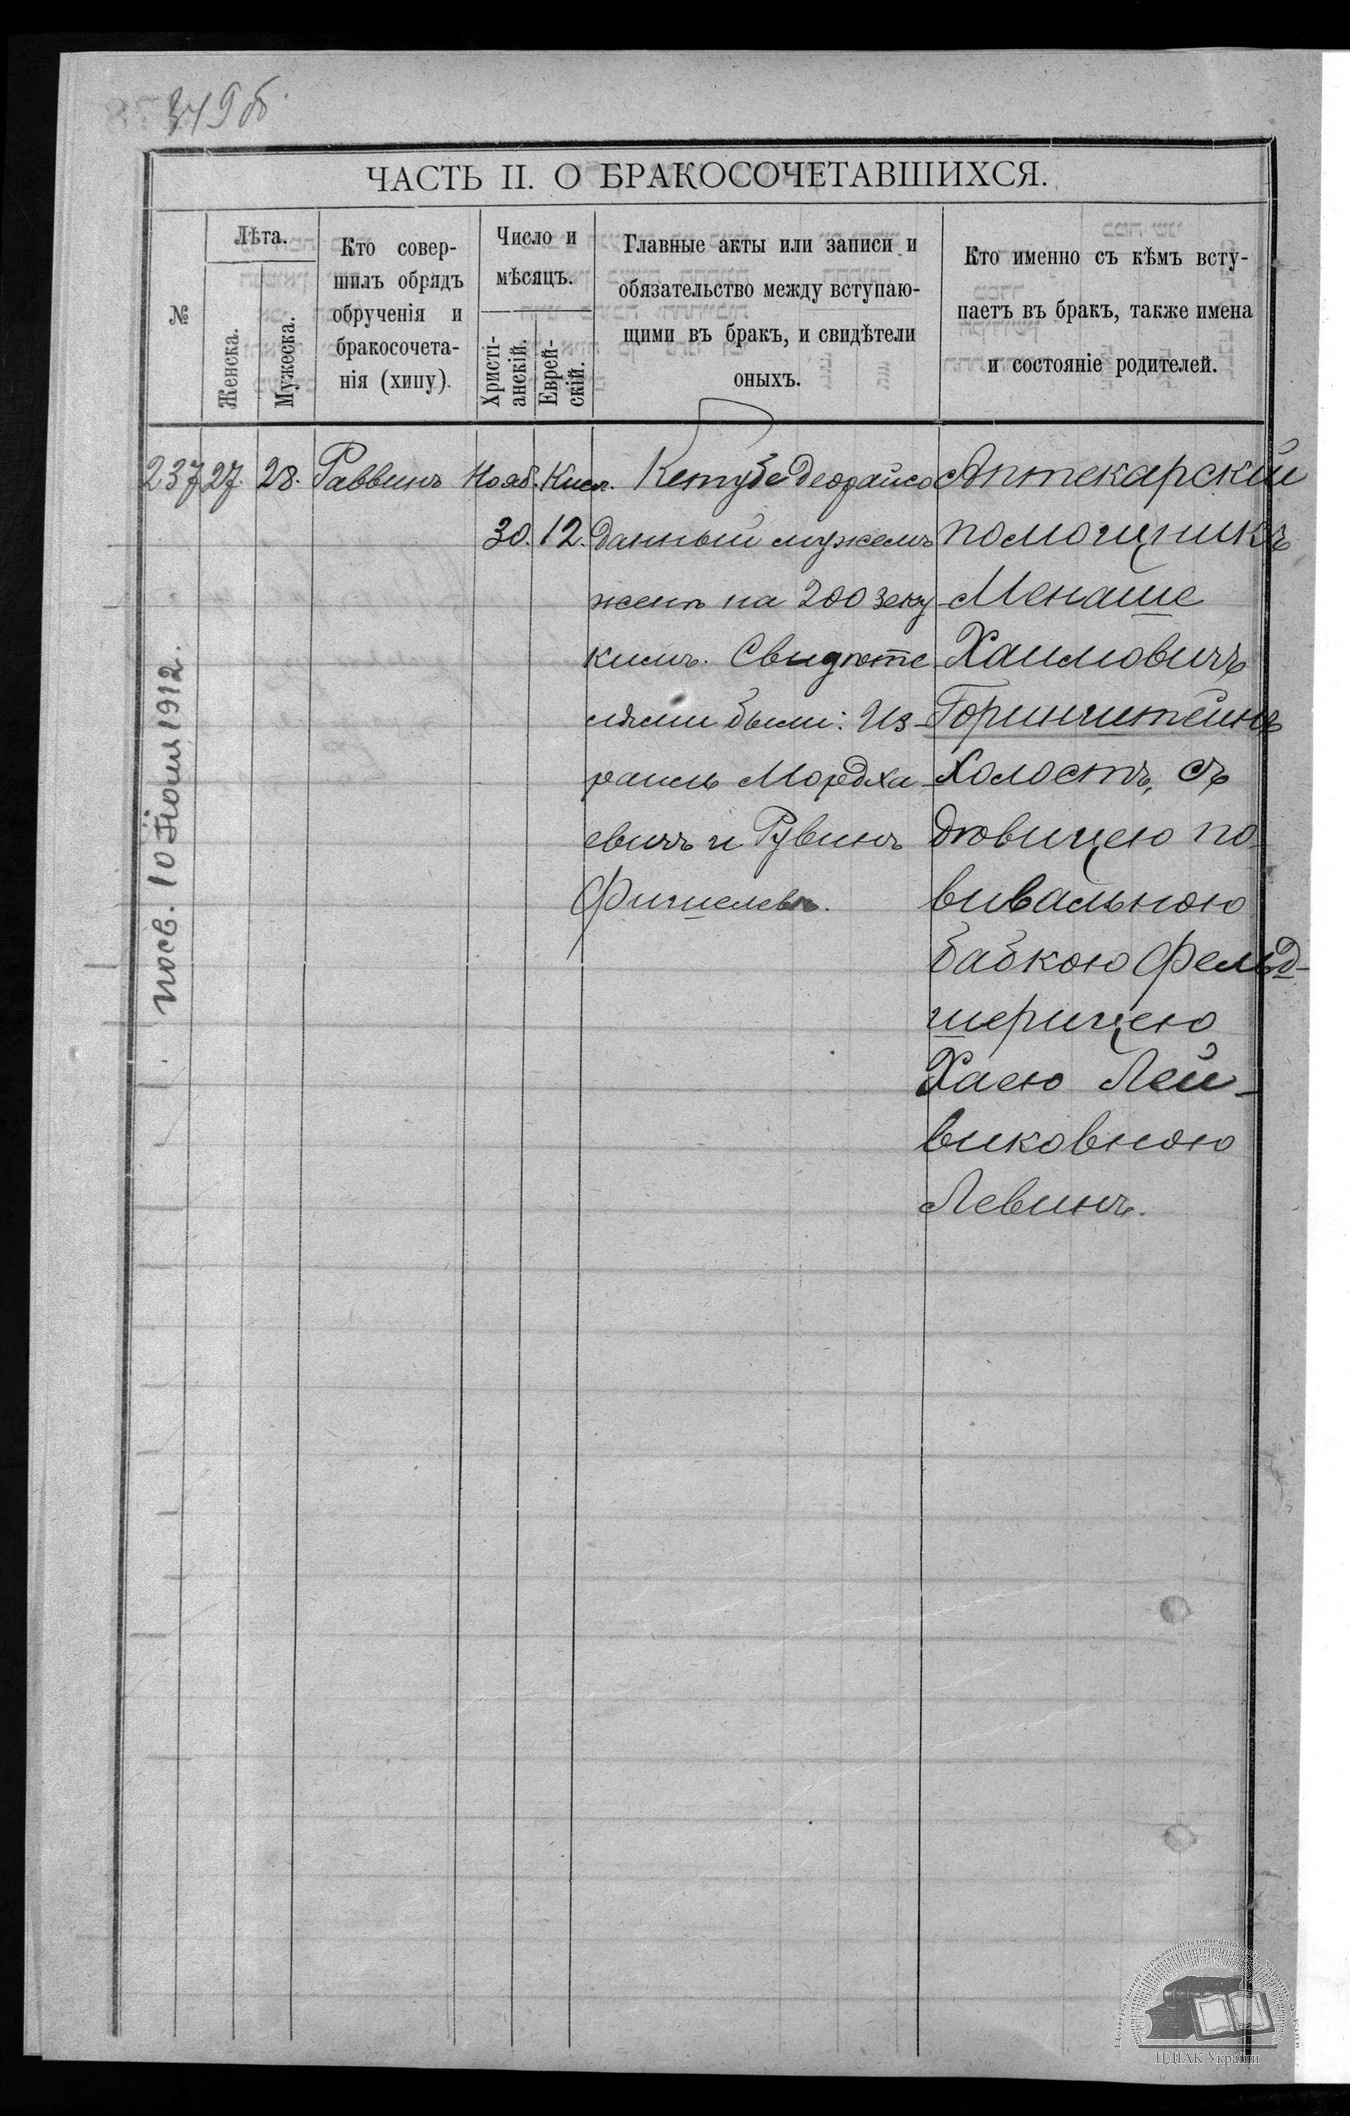 349б.
ЧАСТЬ II. О БРАКОСОЧЕТАВШИХСЯ.
№
Лѣта.
Женска.
Мужеска.
Кто совер-
шилъ обрядъ
обрученія и
бракосочета-
нія (хипу).
Число и
мѣсяцъ.
Христі-
анскій.
Еврей-
скій.
Главные акты или записи и
обязательство между вступаю-
щими въ бракъ, и свидѣтели
оныхъ.
Кто именно съ кѣмъ всту-
паетъ въ бракъ, также имена
и состояніе родителей.
237
27.
28.
Раввинъ
Нояб.
30.
Кисл.
12.
Кетубе деорайсо
данный мужемъ
женѣ на 200 зеку
кимъ. Свидѣте
лями были: Из-
раиль Мордха
евичъ и Рувинъ
Фишелевъ.
Аптекарскій
помощникъ
Менаше
Хаимовичъ
Горинштейнъ
холостъ, съ
дѣвицею по-
вивальною
бабкою фельд-
шерицею
Хаею Лей-
виковною
Левинъ.
посв. 10 Іюля 1912.
ЦДІАК України